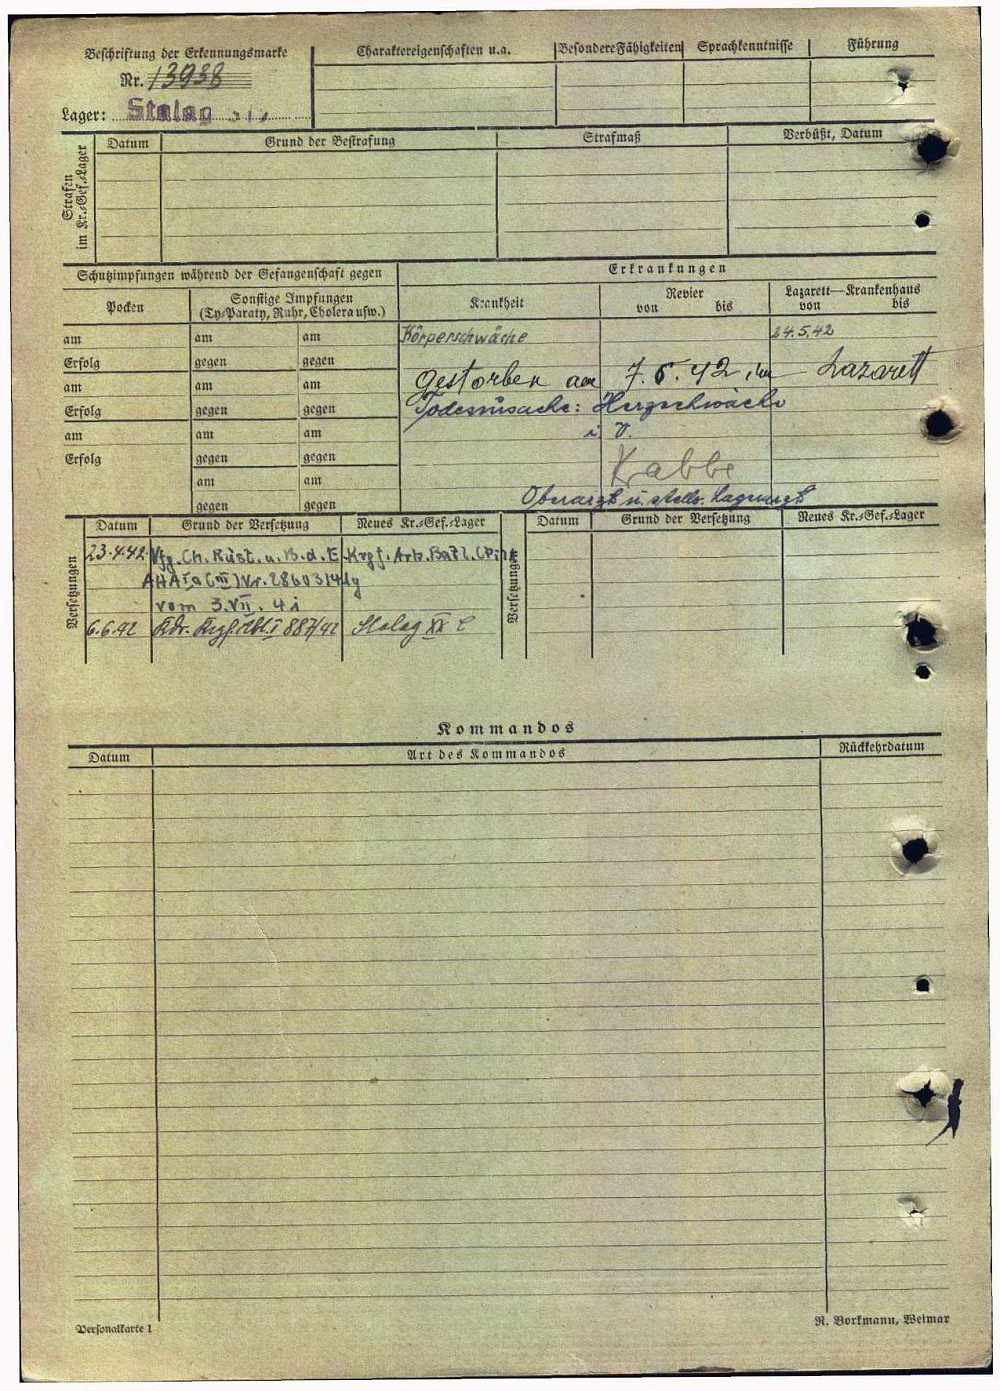 Beschriftung der Erkennungsmarke
Nr. 13938
Lager: Stalag
Charaktereigenschaften u.a. Besondere Fähigkeiten Sprachkenntnisse Führung
Strafen im Kr.-Gef.-Lager
Datum Grund der Bestrafung Strafmaß Verbüßt, Datum
Schutzimpfungen während der Gefangenschaft gegen
Erkrankungen
Pocken
Sonstige Impfungen
(Ty, Paraty, Ruhr, Cholera usw.)
Krankheit
Revier
von bis
Lazarett—Krankenhaus
von bis
am am am Körperschwäche 24.5.42
Erfolg gegen gegen
am am am gestorben am 7.6.42, im Lazarett
Erfolg gegen gegen Todesursache: Herzschwäche
am am am i. V.
Erfolg gegen gegen Kabbe
am am
gegen gegen Oberarzt u. stellv. Lagerarzt
Versetzungen
Datum Grund der Versetzung Neues Kr.-Gef.-Lager
Versetzungen
Datum Grund der Versetzung Neues Kr.-Gef.-Lager
23.4.42 Vfg. Ch. Rüst. u. B.d.E. Krgf. Arb. Batl.
AHA Ia (III) Nr.
vom 3.VII.41
6.6.42 Kdr. Krgf. Abt. I 887/42 Stalag XX C
Kommandos
Datum Art des Kommandos Rückkehrdatum
Personalkarte 1
R. Borkmann, Weimar